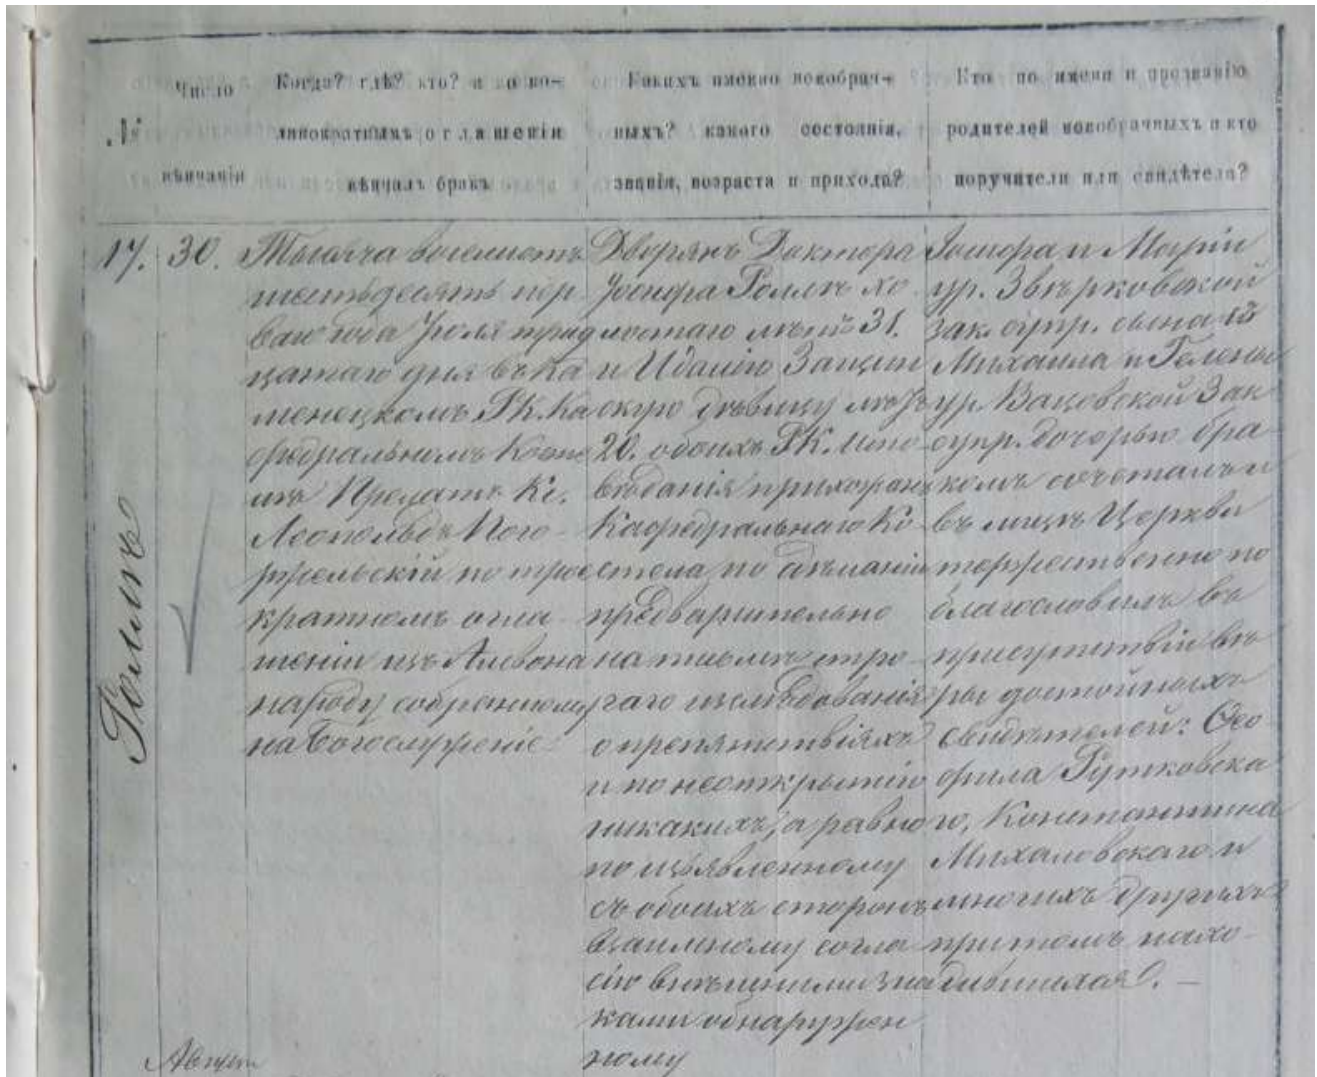 №
Число
вѣнчанія
Когда? гдѣ? кто? и по ко-
ликократныхъ оглашеніи
вѣнчалъ бракъ
Какихъ именно новобрач-
ныхъ? какого состоянія,
званія, возраста и прихода?
Кто по имени и прозванію
родителей новобрачныхъ и кто
поручители или свидѣтели?
17.
30.
Ролле
Тысяча восемсотъ
шестьдесятъ пер
ваго года Іюля трид
цатаго дня въ Ка
менецкомъ РК. Ка
федральномъ Косте
лѣ Прелатъ Кс.
Леопольдъ Пого-
ржельскій по трое
кратномъ огла
шеніи изъ Амвона
народу собранному
на Богослуженіе
Дворянъ Доктора
Іосифа Ролле хо
лостаго лѣтъ 31.
и Идалію Защин
скую дѣвицу лѣтъ
20. обоихъ РК. испо-
вѣданія прихожан
Кафедральнаго Ко
стела, по сдѣланіи
предварительно
на письмѣ стро
гаго изслѣдованія
о препятствіяхъ
и по неоткрытіи
никакихъ, а равно
по изъявленному
съ обоихъ сторонъ
взаимному согла
сію внѣшними зна
ками обнаружен
ному
Іосифа и Маріи
ур. Звѣрковской
зак. супр. сына съ
Михаила и Гелены
ур. Ваковской Зак
супр. дочерью бра
комъ сочеталъ и
въ лицѣ Церкви
торжественно по
благословилъ въ
присутствіи вѣ
ры достойныхъ
свидѣтелей: Ѳео
фила Рутковска
го, Константина
Михаловскаго и
многихъ другихъ
притомъ нахо-
дившихся. —
Август